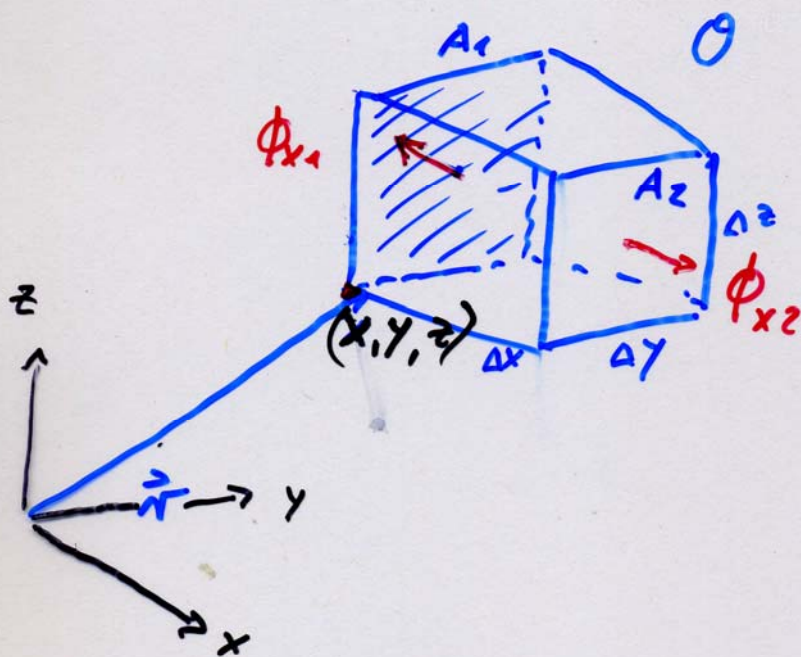 A1
O
ϕx1
A2
Δz
ϕx2
z
(x, y, z)
Δx
Δy
y
x